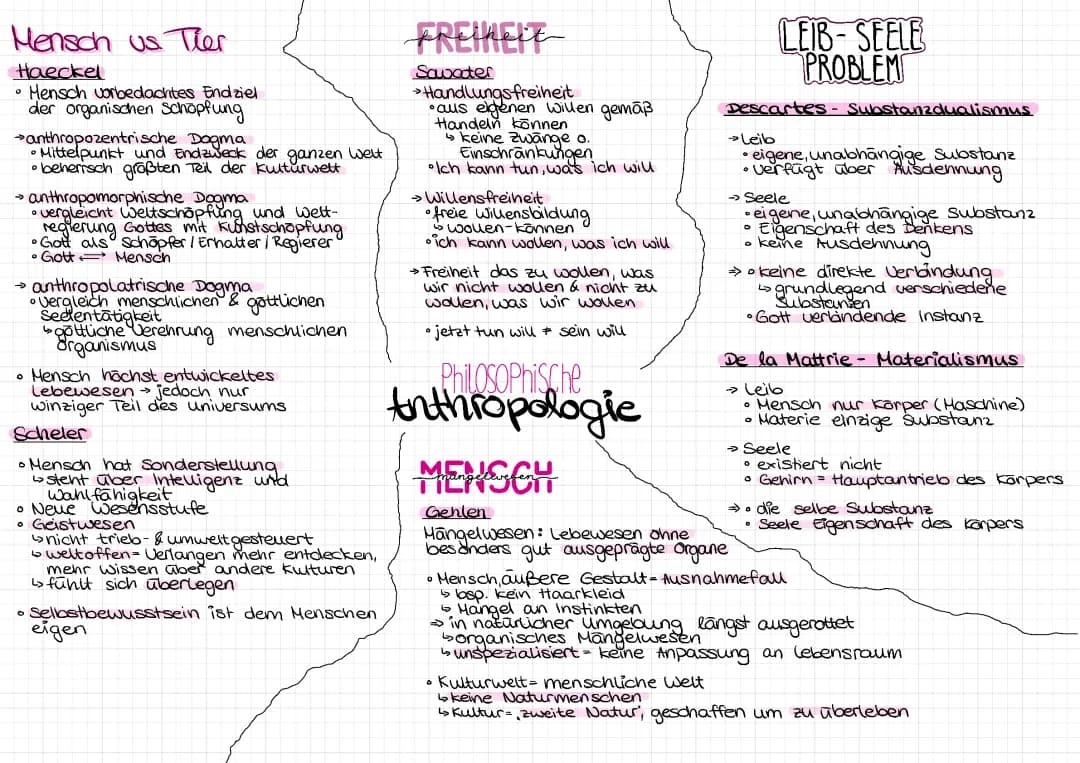 Mensch vs Tier
Haeckel
• Mensch vorbedachtes Endziel
der organischen Schöpfung
→ anthropozentrische Dogma
• Mittelpunkt und Endzweck der ganzen Welt
• beherrsch größten Teil der Kulturwelt
→ anthropomorphische Dogma
• vergleicht Weltschöpfung und Welt-
regierung Gottes mit Kunstschöpfung
• Gott als Schöpfer / Erhalter / Regierer
• Gott ⇌ Mensch
→ anthropolatrische Dogma
• Vergleich menschlichen & göttlichen
Seelentätigkeit
↳ göttliche Verehrung menschlichen
Organismus
• Mensch höchst entwickeltes
Lebewesen → jedoch nur
winziger Teil des Universums
Scheler
• Mensch hat Sonderstellung
↳ steht über Intelligenz und
Wahlfähigkeit
• Neue Wesensstufe
• Geistwesen
↳ nicht trieb- & umweltgesteuert
↳ weltoffen = Verlangen mehr entdecken,
mehr Wissen über andere Kulturen
↳ fühlt sich überlegen
• Selbstbewusstsein ist dem Menschen
eigen
FREIHEIT
freiheit
Savater
→ Handlungsfreiheit
• aus eigenen Willen gemäß
Handeln können
↳ keine Zwänge o.
Einschränkungen
• Ich kann tun, was ich will
→ Willensfreiheit
• freie Willensbildung
↳ wollen-können
• ich kann wollen, was ich will
→ Freiheit das zu wollen, was
wir nicht wollen & nicht zu
wollen, was wir wollen
• jetzt tun will ≠ sein will
Philosophische
Anthropologie
MENSCH
mängelwesen
Gehlen
Mängelwesen: Lebewesen ohne
besonders gut ausgeprägte Organe
• Mensch, äußere Gestalt = Ausnahmefall
↳ bsp. kein Haarkleid
↳ Mangel an Instinkten
⇒ in natürlicher Umgebung längst ausgerottet
↳ organisches Mängelwesen
↳ unspezialisiert = keine Anpassung an Lebensraum
• Kulturwelt = menschliche Welt
↳ keine Naturmenschen
↳ Kultur = ‚zweite Natur', geschaffen um zu überleben
LEIB-SEELE
PROBLEM
Descartes - Substanzdualismus
→ Leib
• eigene, unabhängige Substanz
• verfügt über Ausdehnung
→ Seele
• eigene, unabhängige Substanz
• Eigenschaft des Denkens
• keine Ausdehnung
⇒ • keine direkte Verbindung
↳ grundlegend verschiedene
Substanzen
• Gott verbindende Instanz
De la Mattrie - Materialismus
→ Leib
• Mensch nur Körper (Maschine)
• Materie einzige Substanz
→ Seele
• existiert nicht
• Gehirn = Hauptantrieb des Körpers
⇒ • die selbe Substanz
• Seele Eigenschaft des Körpers